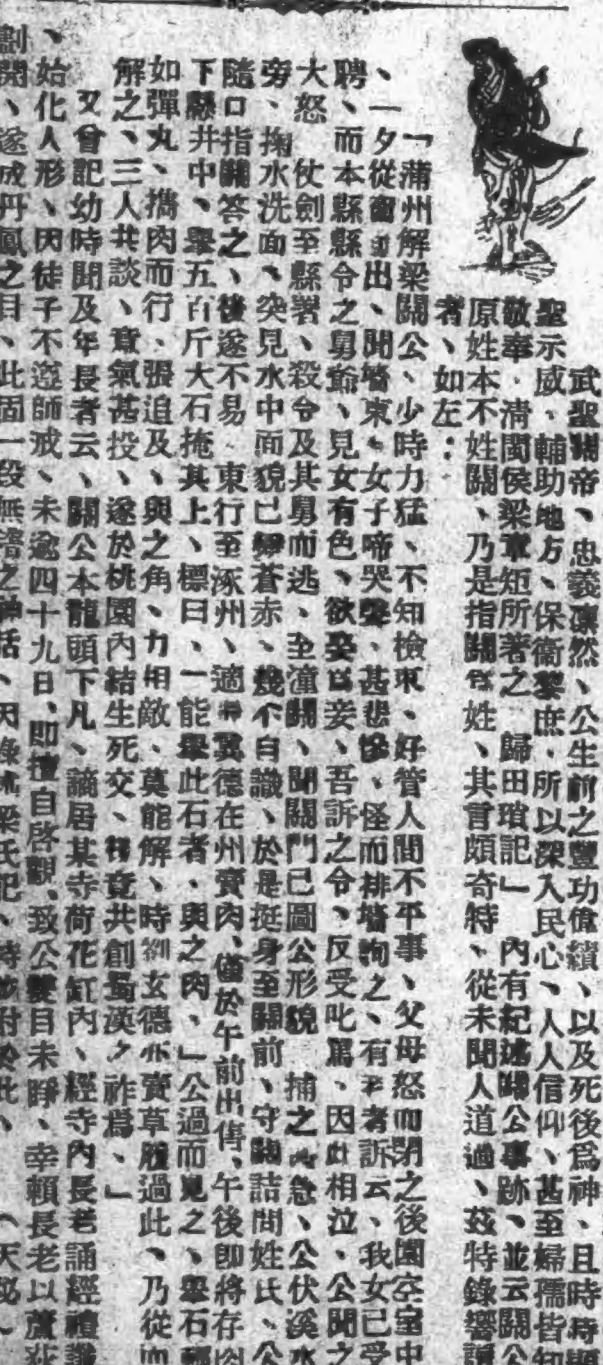 武聖關帝、忠義凛然、公生前之豐功偉績、以及死後爲神、且時時顯
聖示威、輔助地方、保衛黎庶、所以深入民心、人人信仰、甚至婦孺皆知
敬奉、淸閩侯梁章矩所著之　歸田瑣記」　內有紀述關公事跡、並云關公
原姓本不姓關、乃是指關爲姓、其言頗奇特、從未聞人道過、茲特錄饗讀
者、如左：
「蒲州解梁關公、少時力猛、不知檢束、好管人間不平事、父母怒而閉之後園空室中
、一夕從窗出、聞墻東、女子啼哭聲、甚悲慘、怪而排墻詢之、有老者訴云、我女已受
聘、而本縣縣令之舅爺、見女有色、欲娶爲妾、吾訴之令、反受叱罵、因此相泣、公聞之
大怒　仗劍至縣署、殺令及其舅而逃、至潼關、聞關門已圖公形貌　捕之甚急、公伏溪水
旁、掬水洗面、突見水中面貌已變蒼赤、幾不自識、於是挺身至關前、守關詰問姓氏、公
隨口指關答之、後遂不易．東行至涿州、適 翼德在州賣肉、僅於午前出售、午後卽將存肉
下懸井中、舉五百斤大石掩其上、標曰、「能舉此石者、與之肉、」公過而見之、舉石輕
如彈丸、携肉而行、張追及、與之角、力相敵、莫能解、時劉玄德亦賣草履過此、乃從而
解之、三人共談、意氣甚投、遂於桃園內結生死交、 竟共創蜀漢之祚焉、」
又曾記幼時聞及年長者云、關公本龍頭下凡、謫居某寺荷花缸內、經寺內長老誦經禮讖
、始化人形、因徒子不遵師戒、未逾四十九日、卽擅自啓觀、致公雙目未睜、幸賴長老以蘆荻
劃開、遂成丹鳳之目、此固一段無稽之神話、因錄 梁氏記、 附於此、　（天